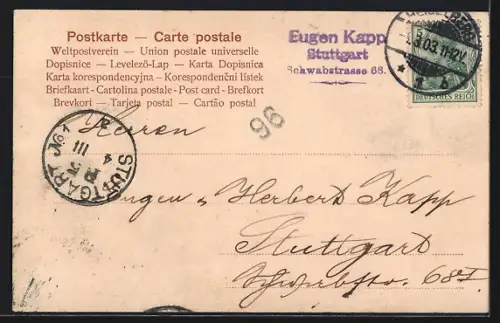 Postkarte — Carte postale
Weltpostverein — Union postale universelle
Dopisnice — Levelező-Lap — Karta Dopisnica
Karta korespondencyjna — Korespondenční lístek
Briefkaart - Cartolina postale - Post card - Brefkort
Brevkort — Tarjeta postal — Cartão postal
Eugen Kapp
Stuttgart
Schwabstrasse 68.
3.03. 11-12V.
5
DEUTSCHES REICH
96
STUTTGART No 1
III
Herren
Eugen u Herbert Kapp
Stuttgart
Schwabstr. 68I